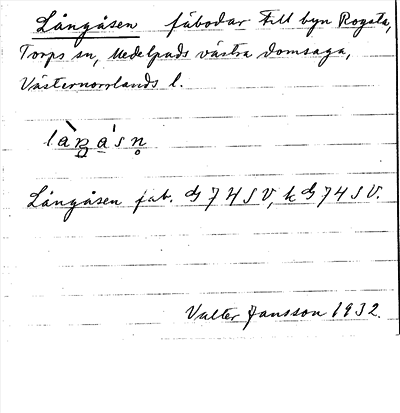 Långåsen fäbodar till byn Rogsta,
Torps sn, Medelpads västra domsaga,
Västernorrlands l.
Långåsen fäb. G 7 H S V, k G 7 H S V.
Valter Jansson 1932.